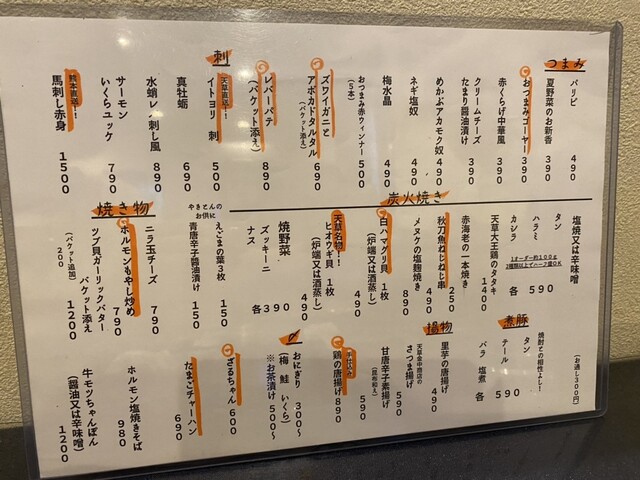 つまみ
バリピ 490
夏野菜のお新香 390
おつまみゴーヤー 390
赤くらげ中華風 390
クリームチーズ
たまり醤油漬け 390
めかぶアカモク奴 490
ネギ塩奴 490
梅水晶 490
おつまみ赤ウィンナー
(5本) 500
ズワイガニと
アボカドタルタル
(バケット添え) 690
レバーパテ
(バケット添え) 890
刺
天草直送!!
イトヨリ 刺 500
真牡蛎 690
水蛸レバ刺し風 890
サーモン
いくらユッケ 790
熊本直送!!
馬刺し赤身 1500
炭火焼き
塩焼又は辛味噌
タン
ハラミ
カシラ
1オーダー約100g
2種類以上でハーフ盛OK
各 590
天草大王鶏のタタキ 1400
赤海老の一本焼き
秋刀魚ねじねじ串 250
メヌケの塩麹焼き 890
白ハマグリ貝 1枚
(炉端又は酒蒸し) 490
天草名物!!
ヒオウギ貝 1枚
(炉端又は酒蒸し) 390
焼野菜
ズッキーニ
ナス
各 390
やきとんの
お供に
えごまの葉3枚 150
青唐辛子醤油漬け 150
焼き物
ニラ玉チーズ 790
ホルモンもやし炒め 790
ツブ貝ガーリックバター
バケット添え 1200
(バケット追加 200
煮豚
焼酎との相性よし!
タン
テール
バラ 塩煮
各 590
(お通し300円)
揚物
里芋の唐揚げ 490
天草金中商店の
さつま揚げ 590
甘唐辛子素揚げ
(昆布和え) 590
鶏の唐揚げ 890
〆
おにぎり 300〜
(梅 鮭 いくら)
※お茶漬け 500〜
ざるちゃん 600
たまごチャーハン 690
ホルモン塩焼きそば 980
牛モツちゃんぽん
(醤油又は辛味噌) 1200